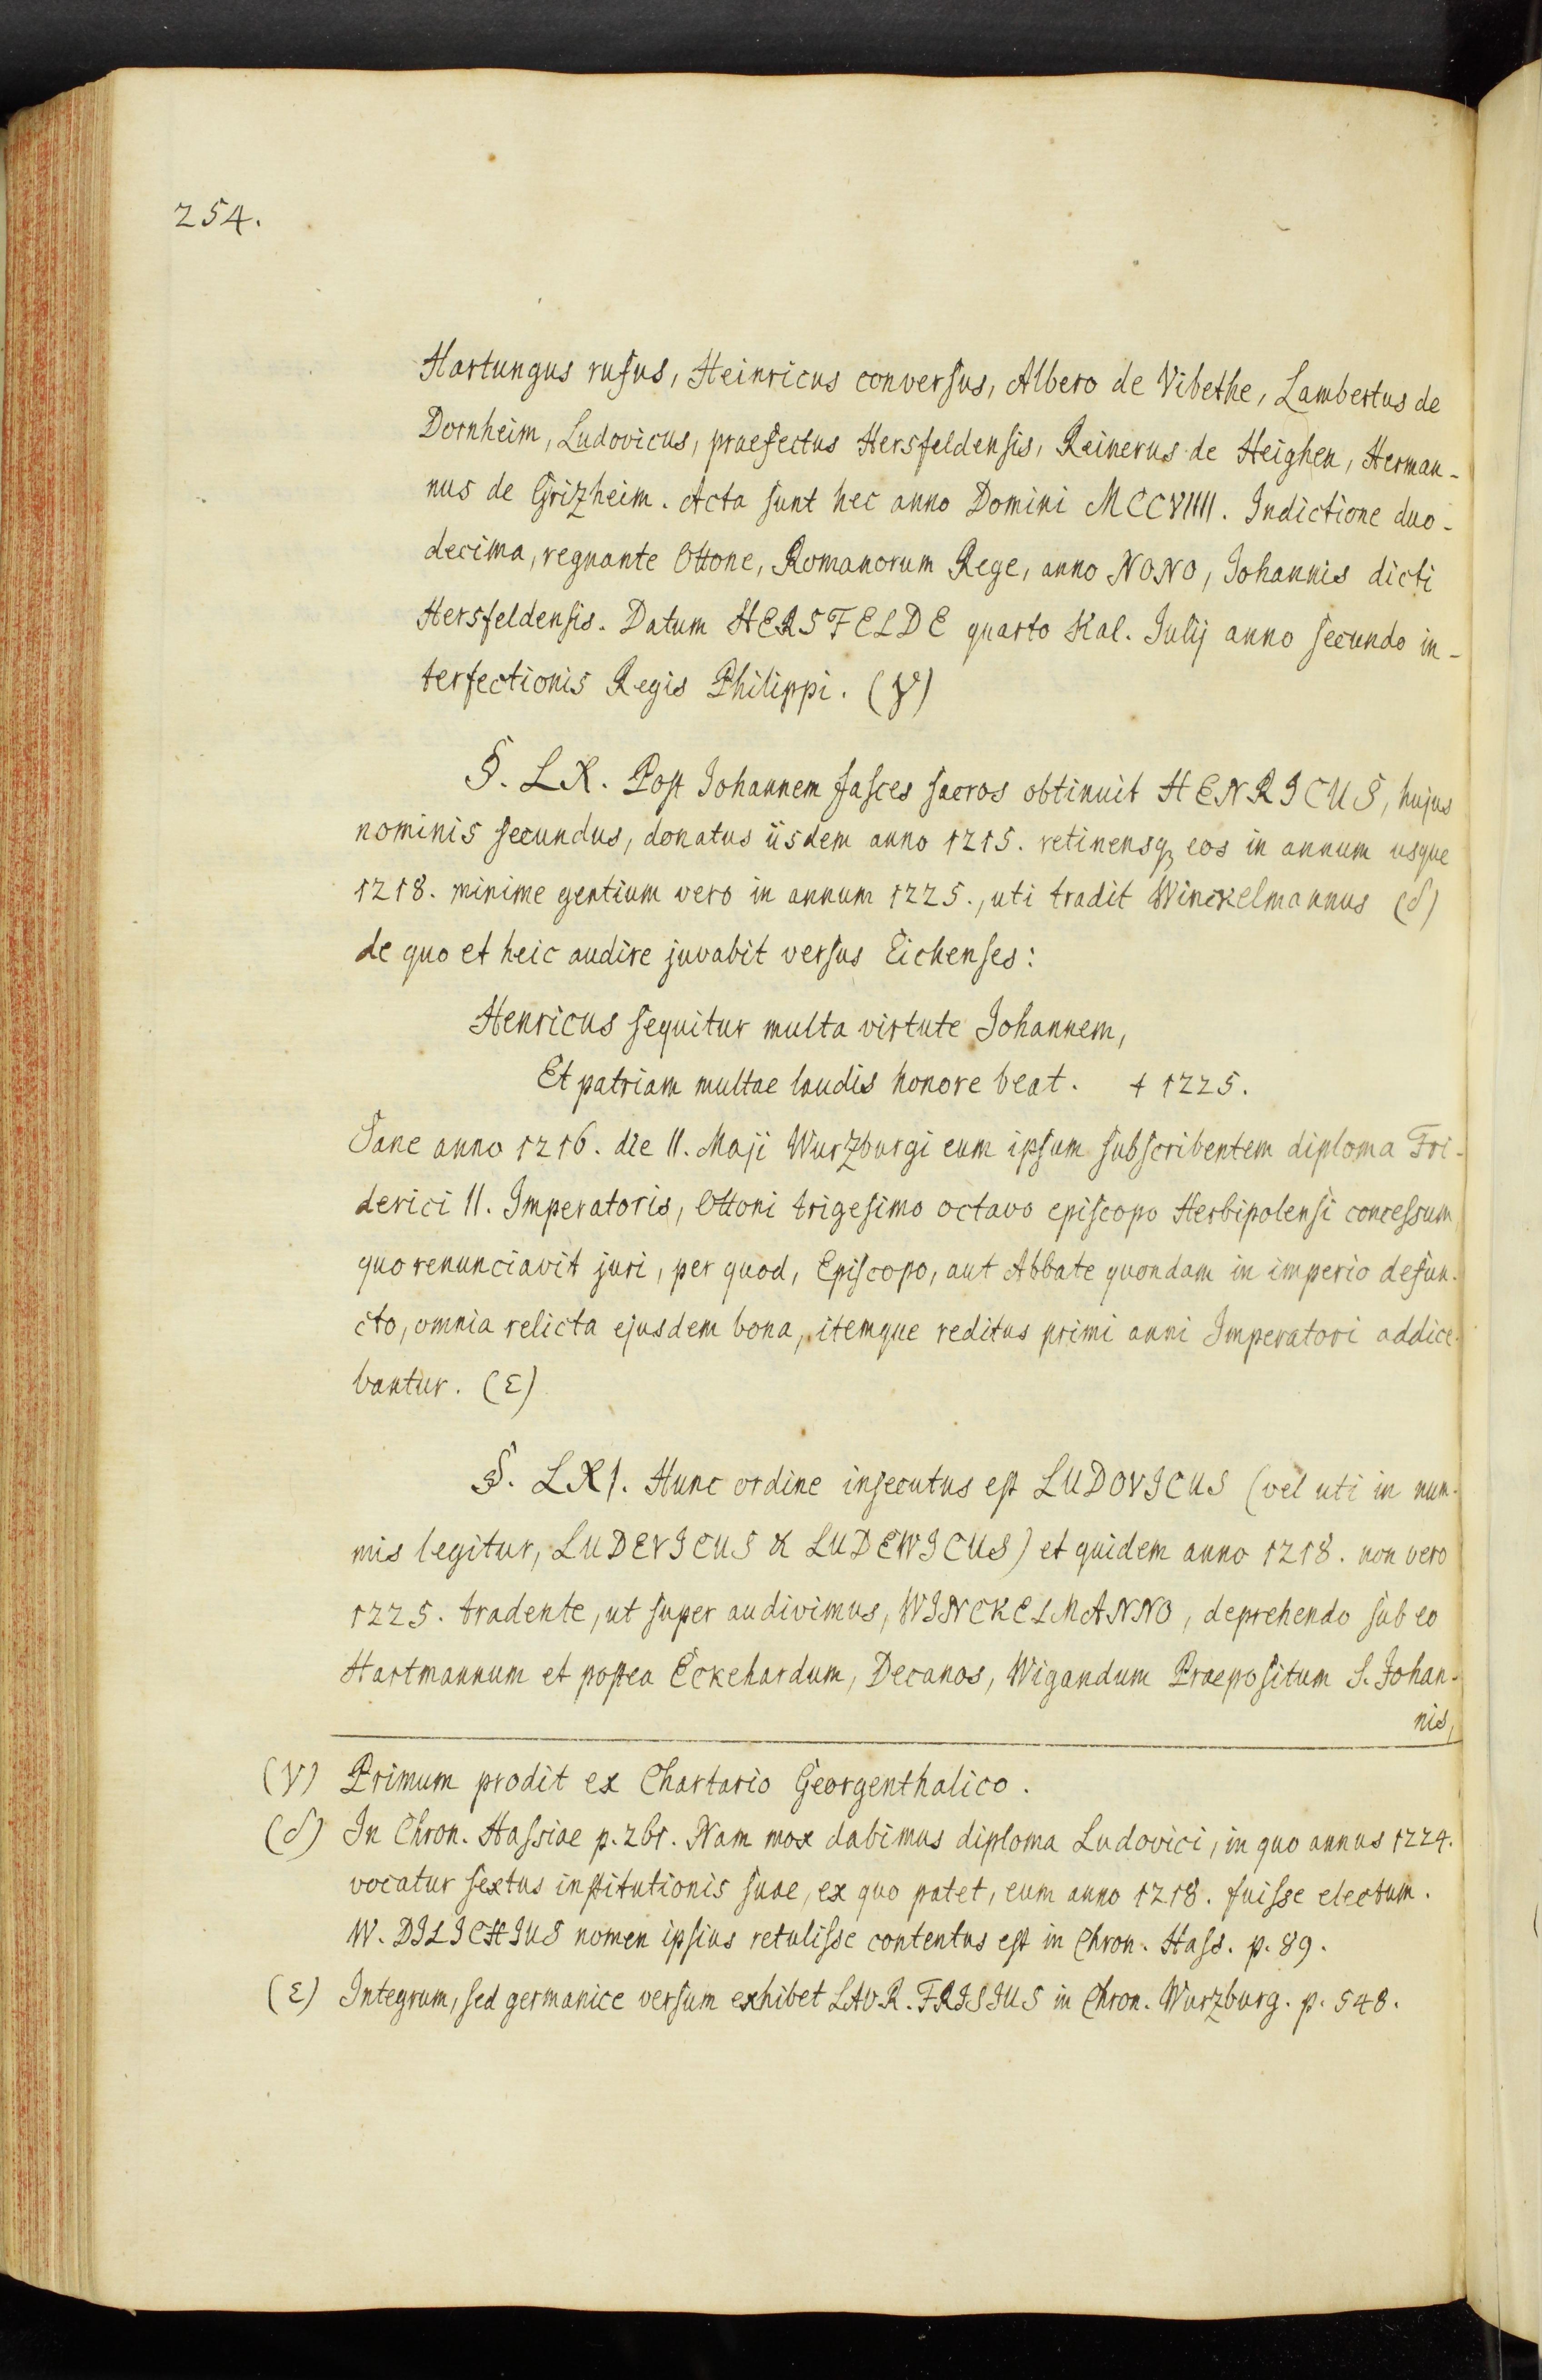 254.
Hartungus rufus, Heinricus conversus, Albero de Vibethe, Lambertus de
Dornheim, Ludovicus, praefectus Hersfeldensis, Reinerus de Heighen, Herman-
nus de Grizheim. Acta sunt hec anno Domini MCCVIIII. Indictione duo-
decima, regnante Ottone, Romanorum Rege, anno NONO, Johannis dicti
Hersfeldensis. Datum HERSFELDE quarto Kal. Julij anno secundo in-
terfectionis Regis Philippi. (γ)
§. LX. Post Johannem fasces sacros obtinuit HENRICUS, hujus
nominis secundus, donatus iisdem anno 1215. retinensq; eos in annum usque
1218. minime gentium vero in annum 1225., uti tradit Winckelmannus (δ)
de quo et heic audire juvabit versus Eichenses:
Henricus sequitur multa virtute Johannem,
Et patriam multae laudis honore beat. † 1225.
Sane anno 1216. die 11. Maji Wurzburgi eum ipsum subscribentem diploma Fri-
derici II. Imperatoris, Ottoni trigesimo octavo episcopo Herbipolensi concessum
quo renunciavit juri, per quod, Episcopo, aut Abbate quondam in imperio defun-
cto, omnia relicta ejusdem bona, itemque reditus primi anni Imperatori addice-
bantur. (ε)
§. LXI. Hunc ordine insecutus est LUDOVICUS (vel uti in num-
mis legitur, LUDEVICUS & LUDEWICUS) et quidem anno 1218. non vero
1225. tradente, ut super audivimus, WINCKELMANNO, deprehendo sub eo
Hartmannum et postea Eckehardum, Decanos, Wigandum Praepositum S. Johan-
nis,
(γ) Primum prodit ex Chartario Georgenthalico.
(δ) In Chron. Hassiae p. 261. Nam mox dabimus diploma Ludovici, in quo annus 1224.
vocatur sextus institutionis suae, ex quo patet, eum anno 1218. fuisse electum.
W. DILICHIUS nomen ipsius retulisse contentus est in Chron. Hass. p. 89.
(ε) Integrum, sed germanice versum exhibet LAUR. FRISIUS in Chron. Wurzburg. p. 548.